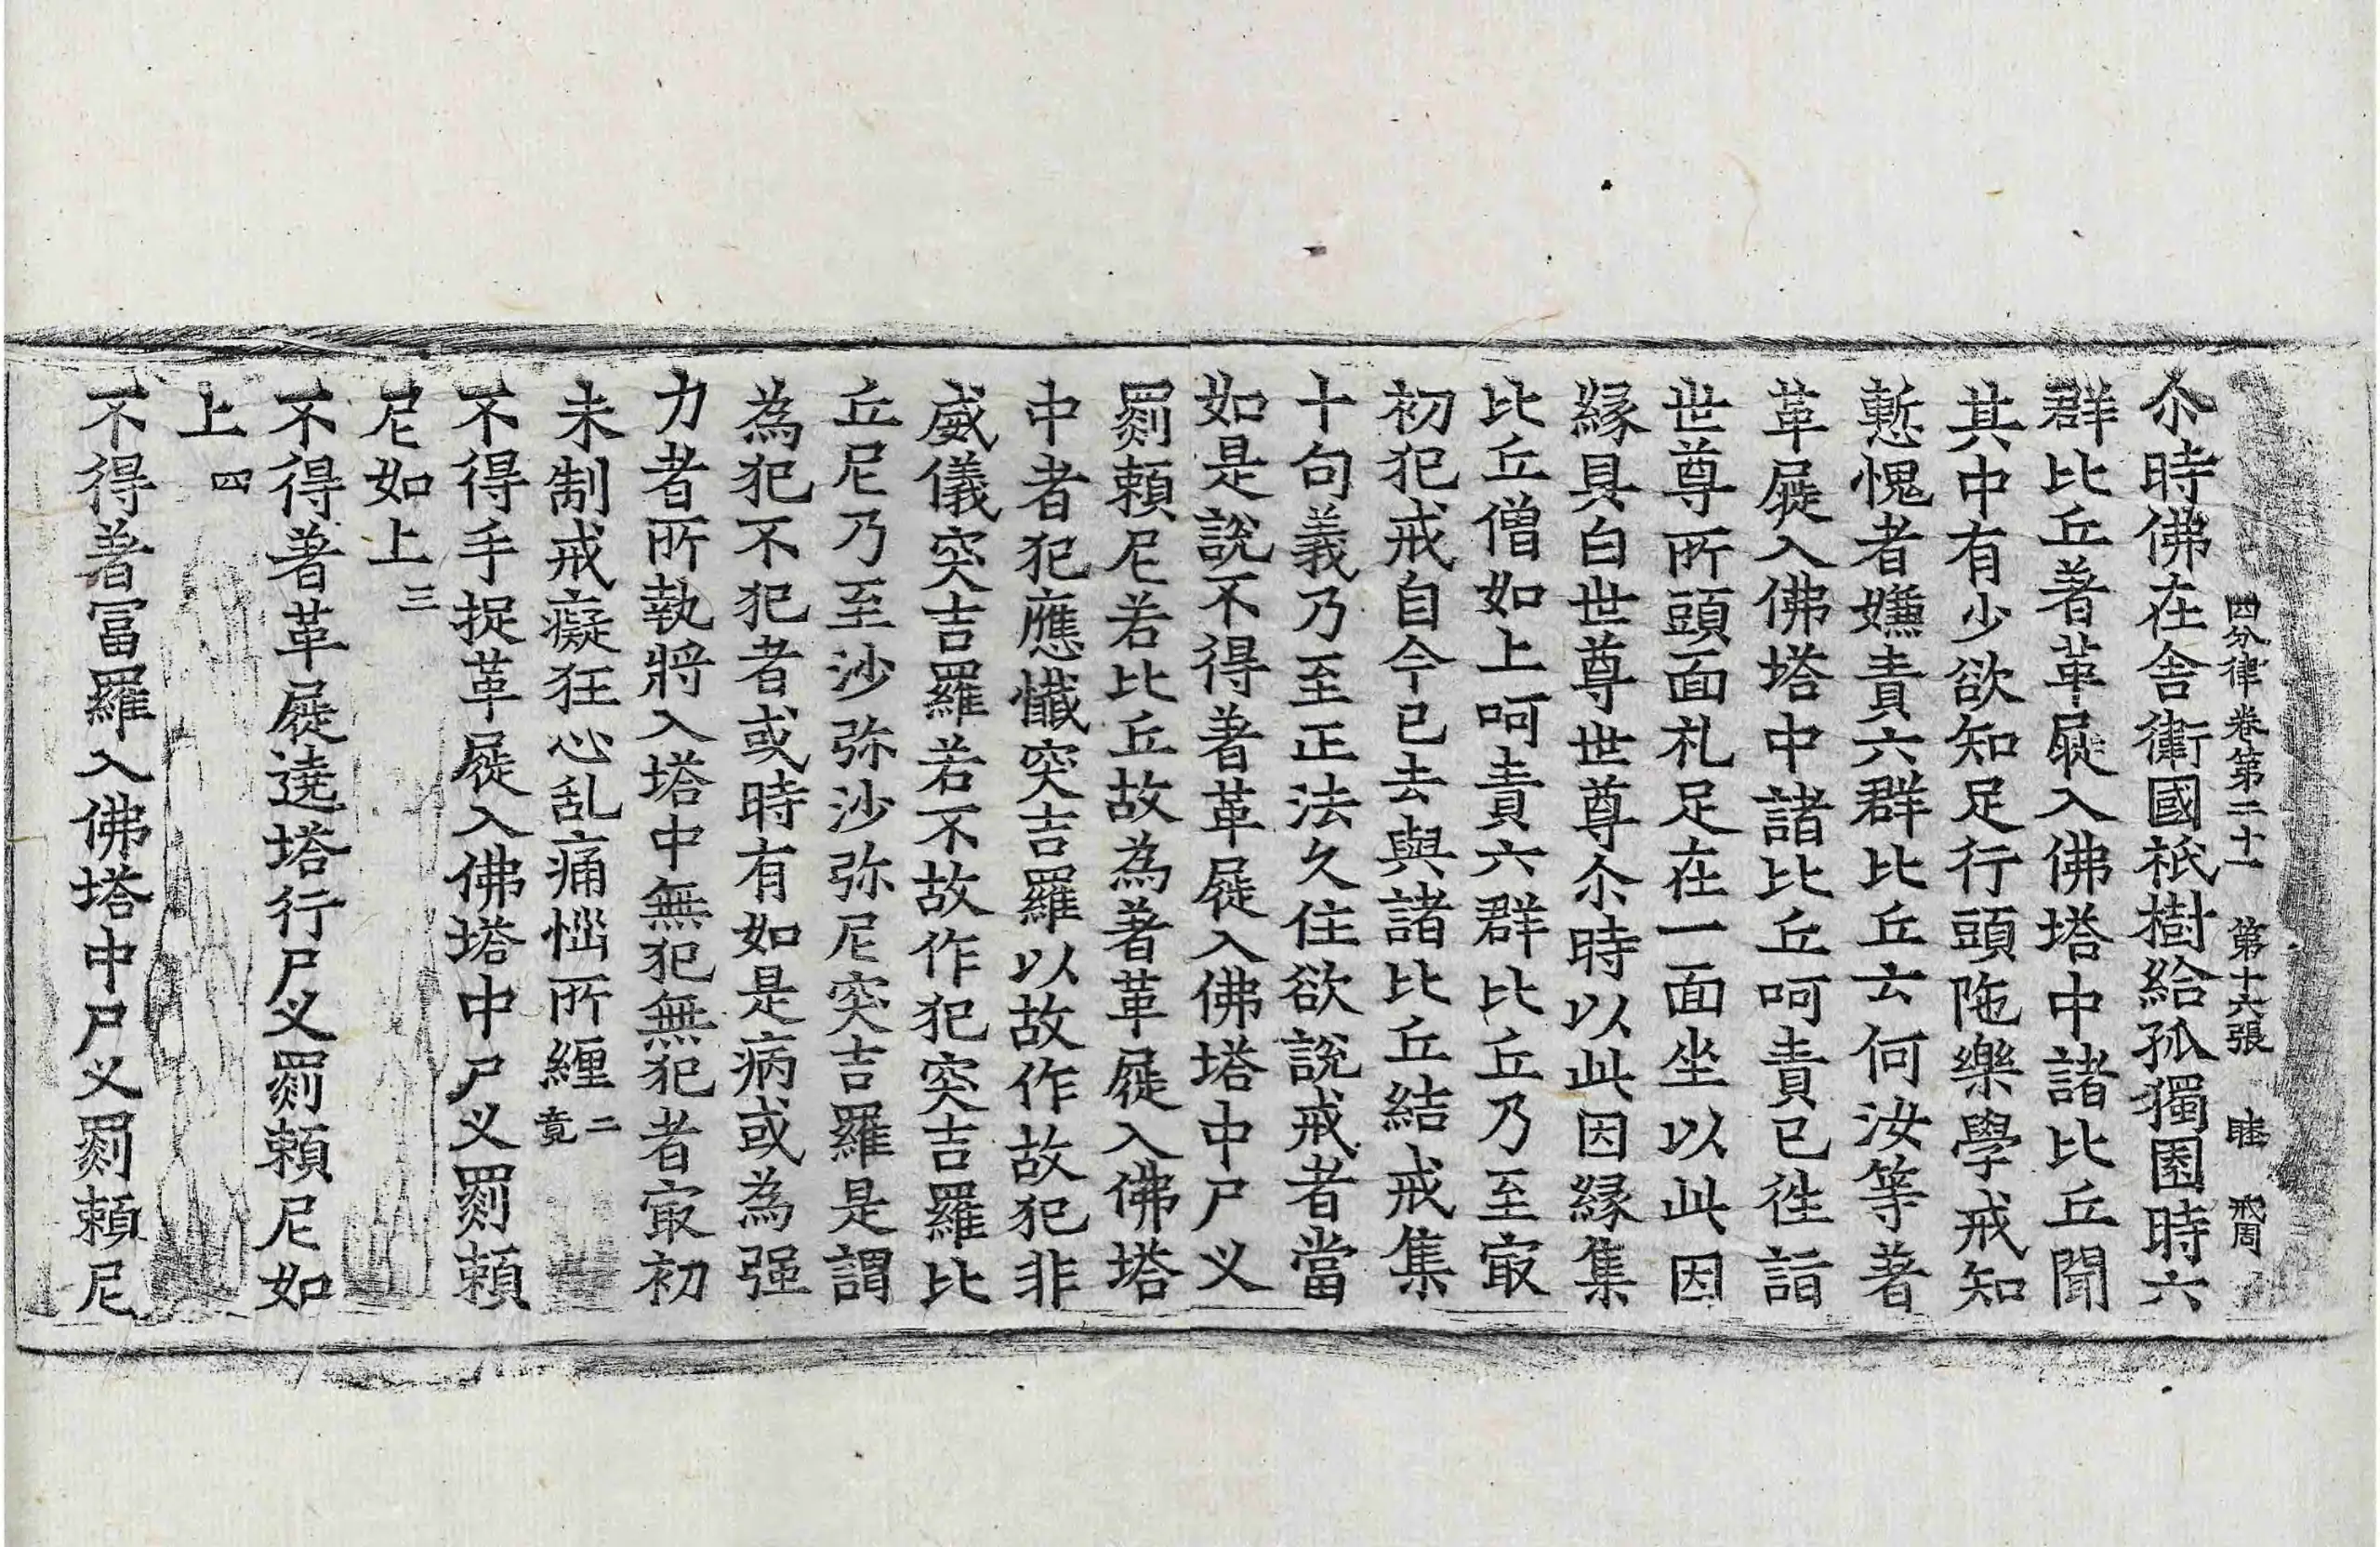 四分律卷第二十一 第十六張 睦 戒周
尒時佛在舍衛國祇樹給孤獨園時六
群比丘著革屣入佛塔中諸比丘聞
其中有少欲知足行頭陁樂學戒知
慙愧者嫌責六群比丘云何汝等著
革屣入佛塔中諸比丘呵責已徃詣
世尊所頭面礼足在一面坐以此因
緣具白世尊世尊尒時以此因緣集
比丘僧如上呵責六群比丘乃至㝡
初犯戒自今已去與諸比丘結戒集
十句義乃至正法久住欲說戒者當
如是說不得著革屣入佛塔中尸叉
罽頼尼若比丘故為著革屣入佛塔
中者犯應懺突吉羅以故作故犯非
威儀突吉羅若不故作犯突吉羅比
丘尼乃至沙弥沙弥尼突吉羅是謂
為犯不犯者或時有如是病或為强
力者所執將入塔中無犯無犯者㝡初
未制戒癡狂心乱痛惱所纏二竟
不得手捉革屣入佛塔中尸叉罽頼
尼如上三
不得著革屣遶塔行尸叉罽頼尼如
上四
不得著富羅入佛塔中尸叉罽頼尼